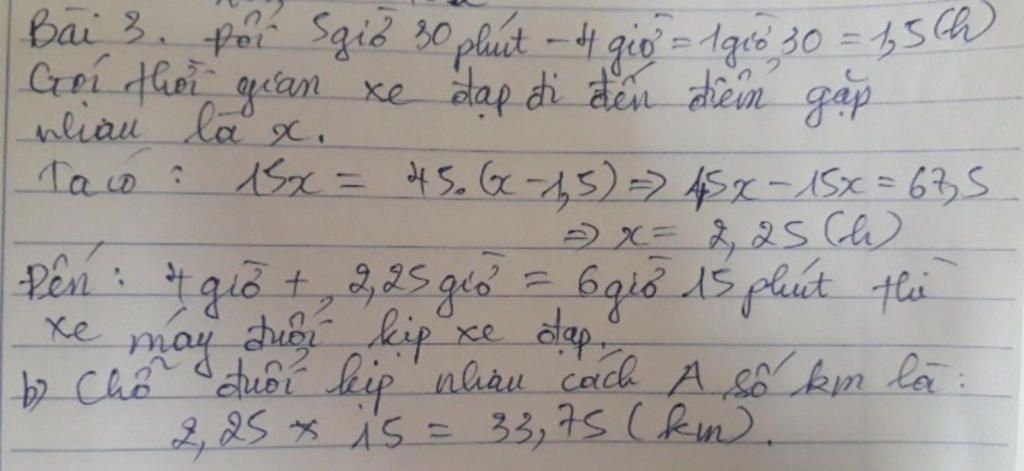 Bài 3. Đổi 5giờ 30 phút - 4 giờ = 1giờ 30 = 1,5(h)
Gọi thời gian xe đạp đi đến điểm gặp
nhau là x.
Ta có : 15x = 45.(x - 1,5) => 45x - 15x = 67,5
=> x = 2,25 (h)
Đến : 4 giờ + 2,25 giờ = 6 giờ 15 phút thì
xe máy đuổi kịp xe đạp.
b) Chỗ đuổi kịp nhau cách A số km là:
2,25 × 15 = 33,75 (km).